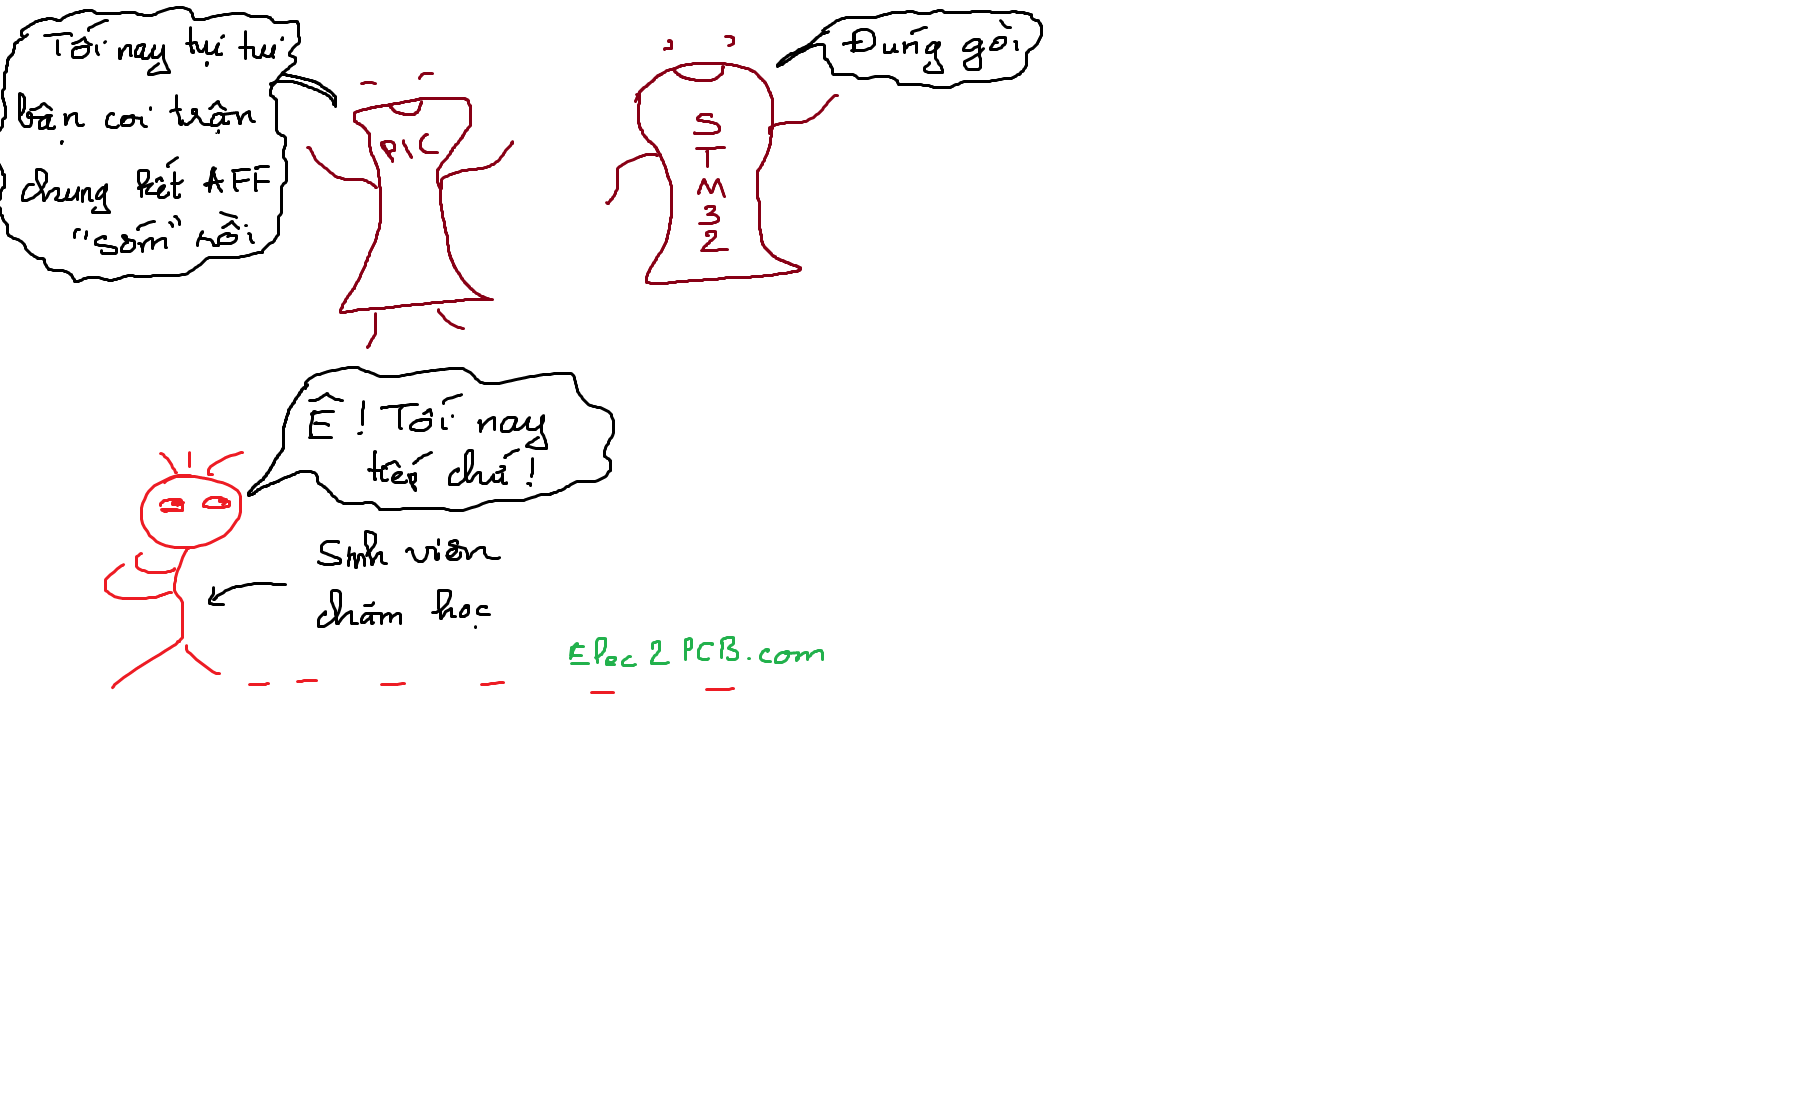 Tối nay tụi tui
bận coi trận
chung kết AFF
"sớm" rồi
PIC
S
T
M
3
2
Đúng gòi
Ê! Tối nay
tiếp chứ!
Sinh viên
chăm học
Elec2PCB.com